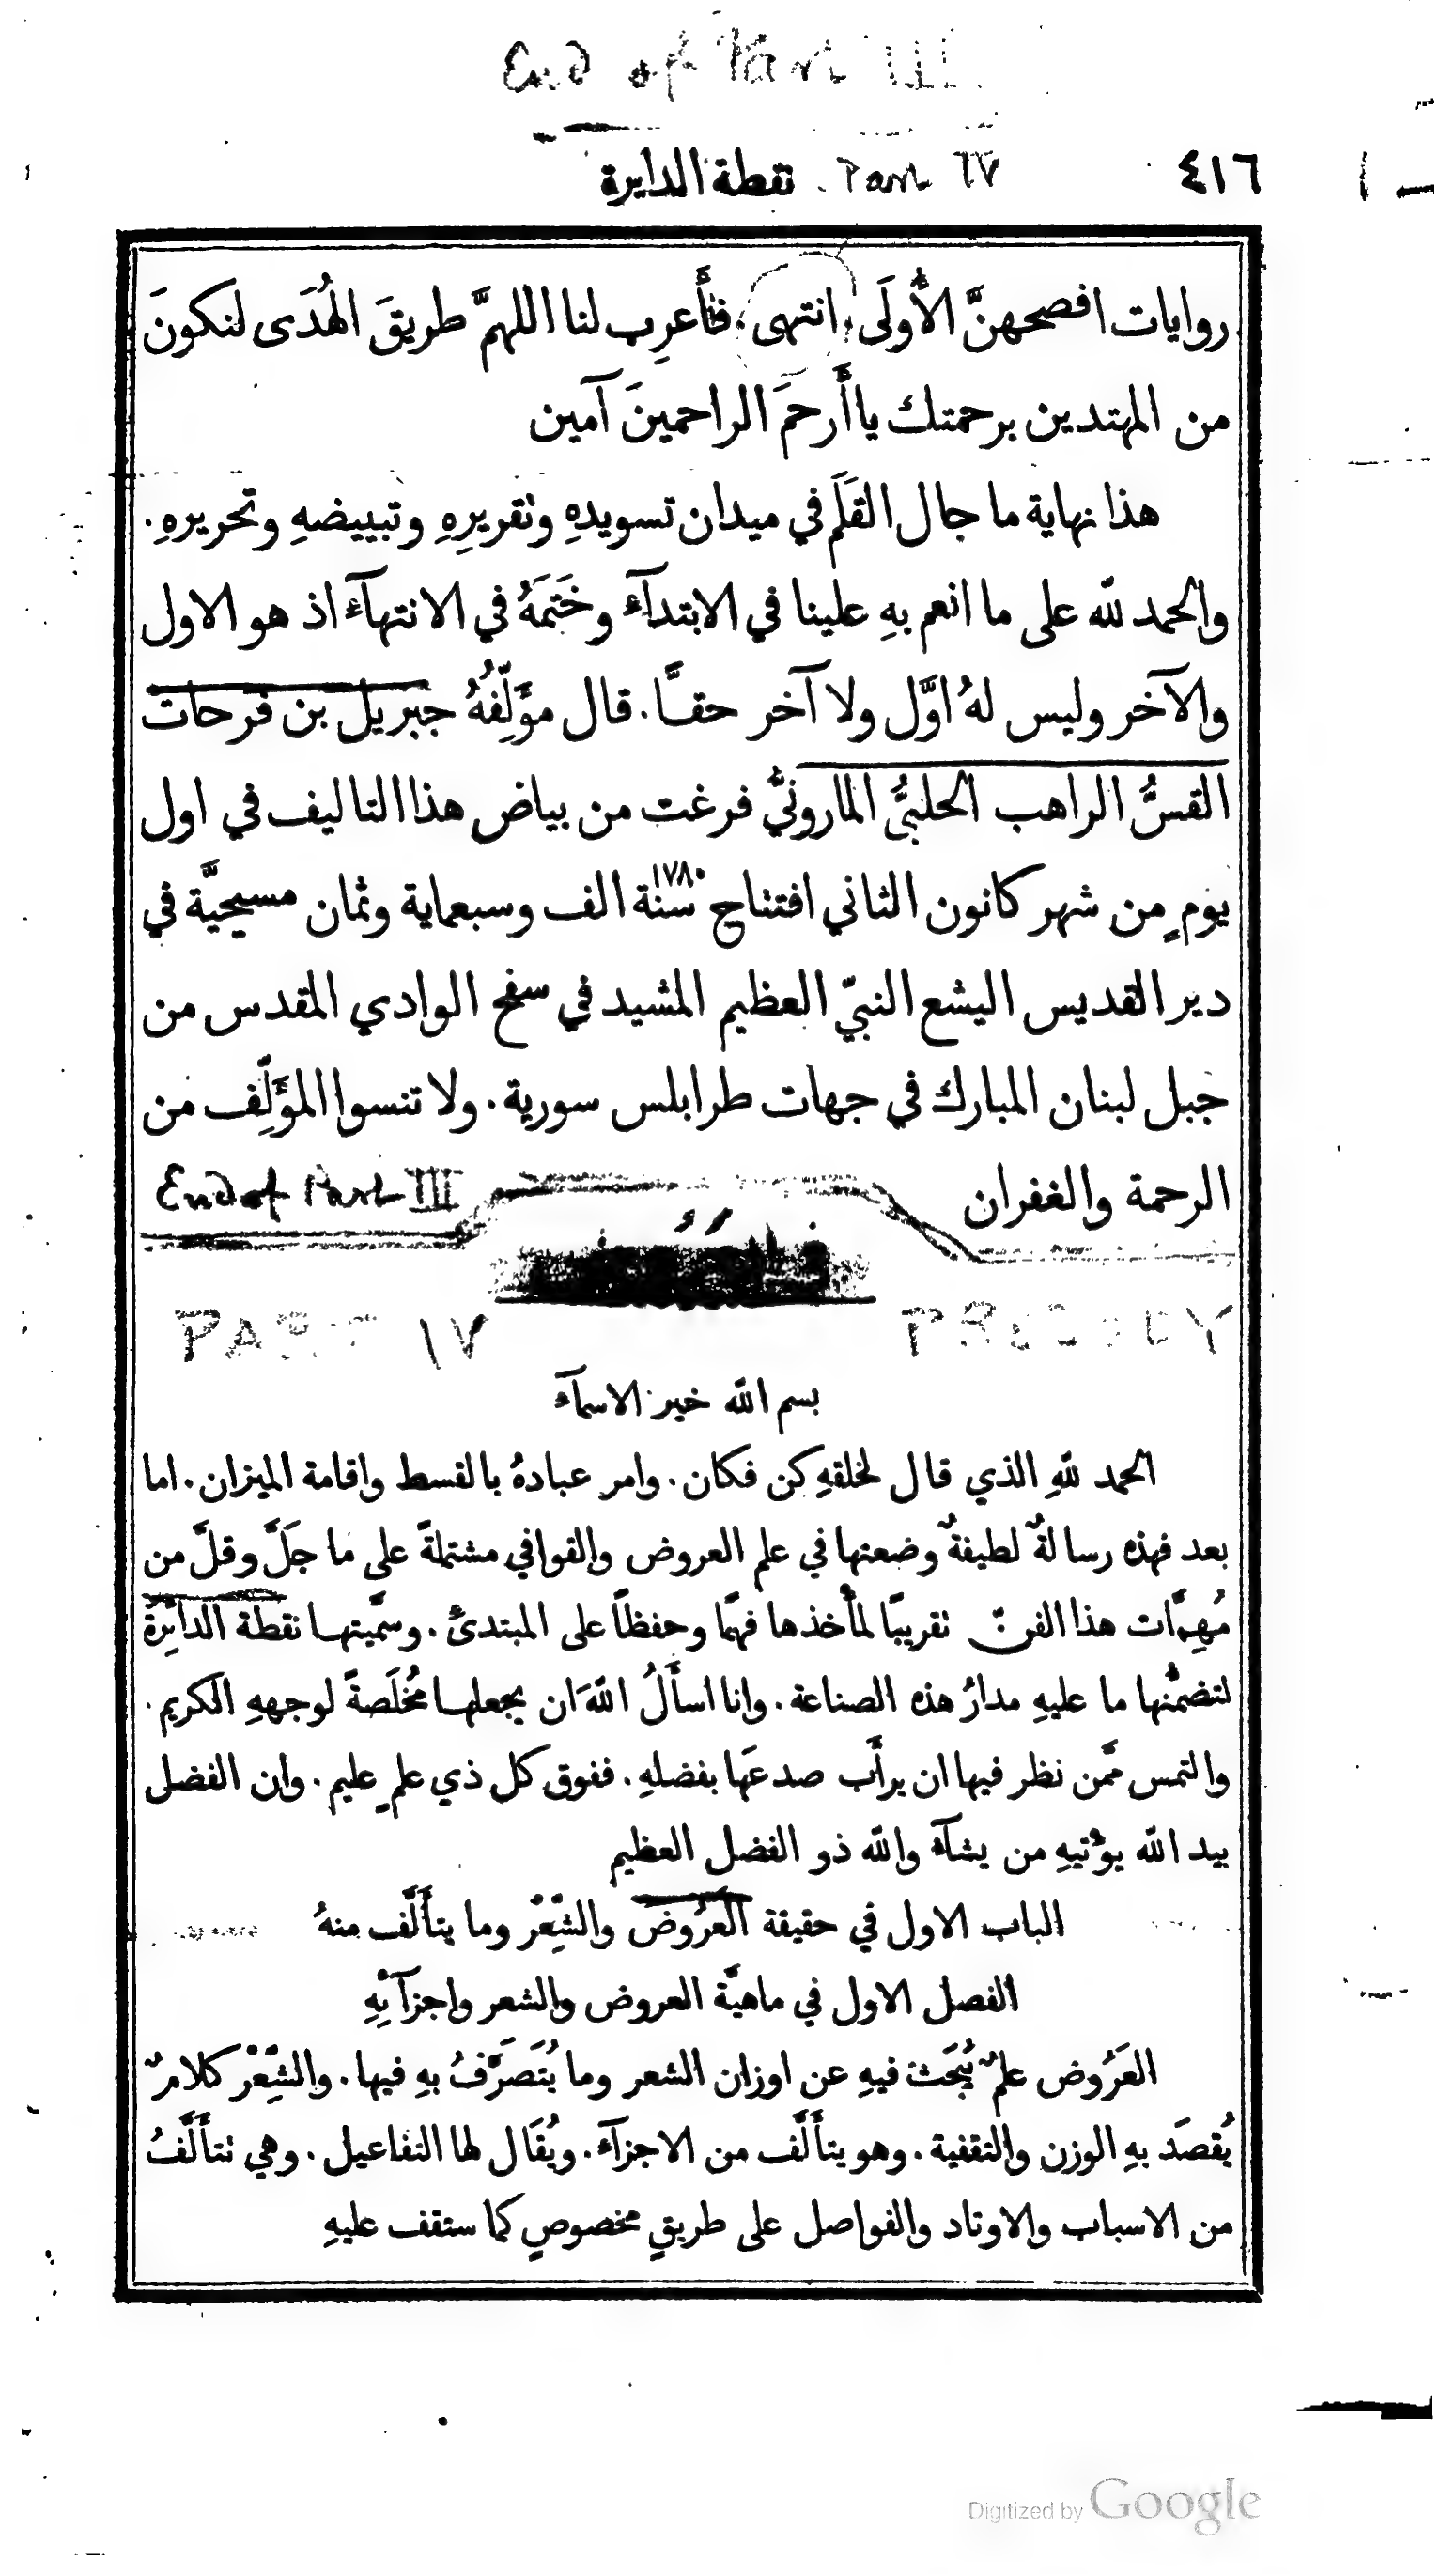 End of Part III
٤١٦ Part IV نقطة الدايرة
روايات افصحهنَّ الأُولَى انتهى. فأَعرِب لنا اللهمَّ طريقَ الهُدَى لنكونَ
من المهتدين برحمتك يا أَرحمَ الراحمينَ آمين
هذا نهاية ما جال القَلَم في ميدان تسويدهِ وتقريرِهِ وتبييضهِ وتحريرهِ.
والحمد لله على ما انعم بهِ علينا في الابتدآءَ وخَتَمَهُ في الانتهآءَ اذ هو الاول
والآخر وليس لهُ اوَّل ولا آخر حقًّا. قال مؤَلّفِهُ جبريل بن فرحات
القسُّ الراهب الحلبيُّ المارونيُّ فرغت من بياض هذا التاليف في اول
يومٍ من شهر كانون الثاني افتتاح سنة ١٧٨٠ الف وسبعماية وثمان مسيحيَّة في
دير القديس اليشع النبيّ العظيم المشيد في سفح الوادي المقدس من
جبل لبنان المبارك في جهات طرابلس سورية. ولا تنسوا المؤَلِّف من
الرحمة والغفران
End of Part III
PART IV PROSODY
بسم الله خير الاسمآء
الحمد للهِ الذي قال لخلقهِ كن فكان. وامر عبادهُ بالقسط واقامة الميزان. اما
بعد فهذه رسالةٌ لطيفةٌ وضعتها في علم العروض والقوافي مشتملةً على ما جَلَّ وقلَّ من
مُهِمَّات هذا الفنّ تقريبًا لمأخذها فهمًا وحفظًا على المبتدئ. وسمَّيتها نقطة الدائرة
لتضمُّنها ما عليهِ مدارُ هذه الصناعة. وانا اسأَلُ اللهَ ان يجعلها مُخلَصةً لوجههِ الكريم.
والتمس ممَّن نظر فيها ان يرأَب صدعَها بفضلهِ. ففوق كل ذي علمٍ عليم. وان الفضل
بيد الله يؤتيهِ من يشآء والله ذو الفضل العظيم
الباب الاول في حقيقة العَرُوض والشِّعْر وما يتأَلَّف منهُ
الفصل الاول في ماهيَّة العروض والشعر واجزآئِهِ
العَرُوض علمٌ يُبحَث فيهِ عن اوزان الشعر وما يُتَصَرَّفُ بهِ فيها. والشِّعْر كلامٌ
يُقصَد بهِ الوزن والتقفية. وهو يتأَلَّف من الاجزآء. ويُقَال لها التفاعيل. وهي تتأَلَّفُ
من الاسباب والاوتاد والفواصل على طريقٍ مخصوصٍ كما ستقف عليهِ
Digitized by Google